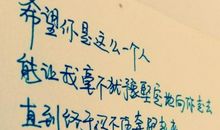 希望你是这么一个人
能让我毫不犹豫坚定地向你走去
直到终于没